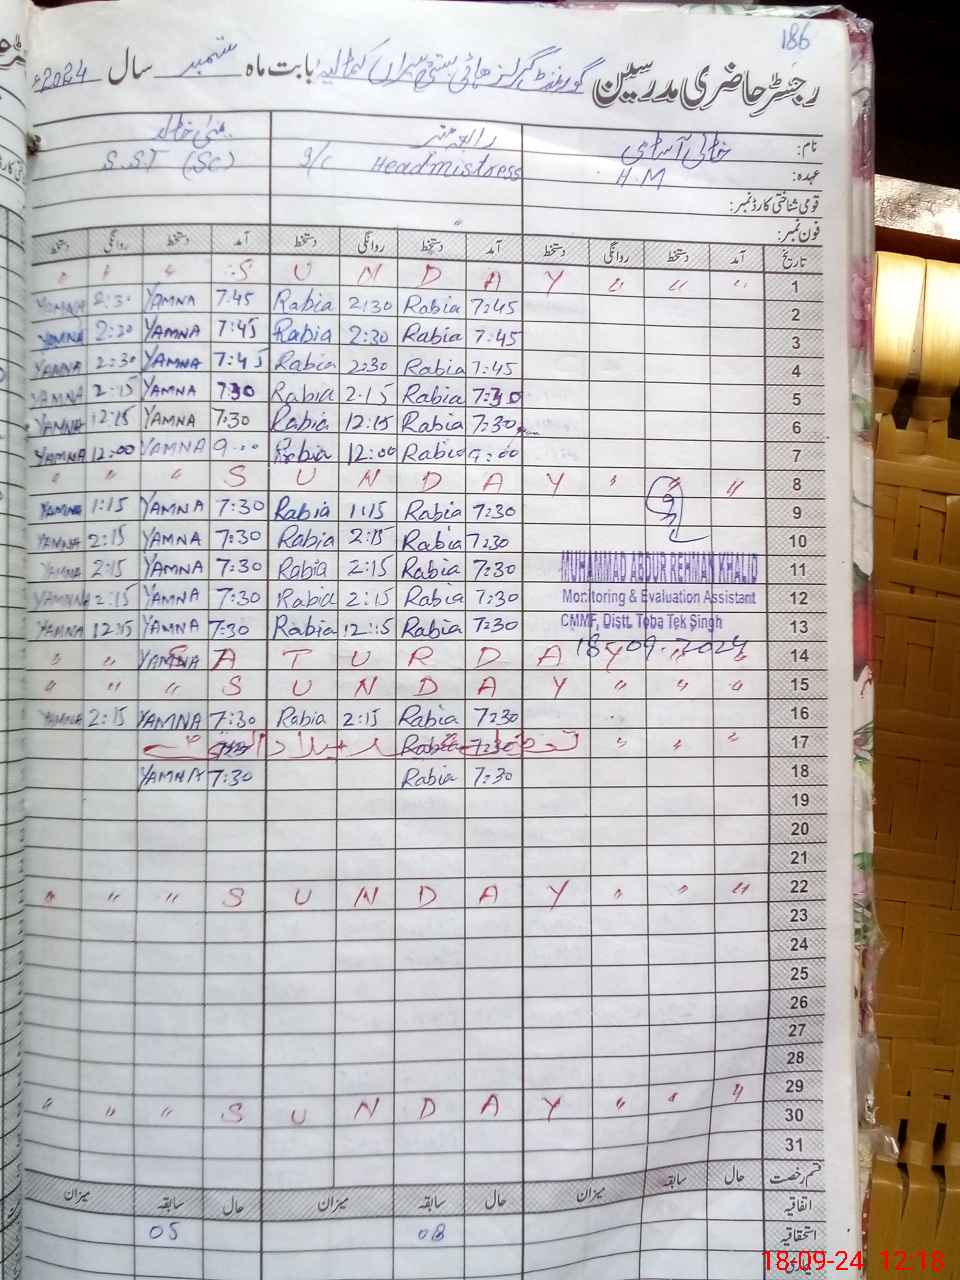 186
رجسٹر حاضری مدرسین گورنمنٹ گرلز ہائی بابت ماہ ستمبر سال 2024ء
نام: خالی آسامی
عہدہ: H.M I/C Headmistress S.S.T (Sc)
قومی شناختی کارڈ نمبر:
فون نمبر:
تاریخ آمد دستخط روانگی دستخط آمد دستخط روانگی دستخط آمد دستخط روانگی دستخط
" " " S U N D A Y " " " 1
YAMNA 2:30 YAMNA 7:45 Rabia 2:30 Rabia 7:45 2
YAMNA 2:30 YAMNA 7:45 Rabia 2:30 Rabia 7:45 3
YAMNA 2:30 YAMNA 7:45 Rabia 2:30 Rabia 7:45 4
YAMNA 2:15 YAMNA 7:30 Rabia 2:15 Rabia 7:30 5
YAMNA 12:15 YAMNA 7:30 Rabia 12:15 Rabia 7:30 6
YAMNA 12:00 YAMNA 9:00 Rabia 12:00 Rabia 9:00 7
" " " S U N D A Y " " " 8
YAMNA 1:15 YAMNA 7:30 Rabia 1:15 Rabia 7:30 9
YAMNA 2:15 YAMNA 7:30 Rabia 2:15 Rabia 7:30 10
YAMNA 2:15 YAMNA 7:30 Rabia 2:15 Rabia 7:30 11
MUHAMMAD ABDUR REHMAN KHALID
YAMNA 2:15 YAMNA 7:30 Rabia 2:15 Rabia 7:30 12
Monitoring & Evaluation Assistant
CMMF, Distt. Toba Tek Singh
YAMNA 12:15 YAMNA 7:30 Rabia 12:15 Rabia 7:30 13
18-09-2024
" " YAMNA S A T U R D A Y " " 14
" " " S U N D A Y " " " 15
YAMNA 2:15 YAMNA 7:30 Rabia 2:15 Rabia 7:30 16
میلاد النبی Rabia 7:30 " " " 17
YAMNA 7:30 Rabia 7:30 18
19
20
21
" " " S U N D A Y " " " 22
23
24
25
26
27
28
" " " S U N D A Y " " " 29
30
31
قسم رخصت حال سابقہ میزان حال سابقہ میزان حال سابقہ میزان
اتفاقیہ
استحقاقیہ 08 05
18-09-24 12:18